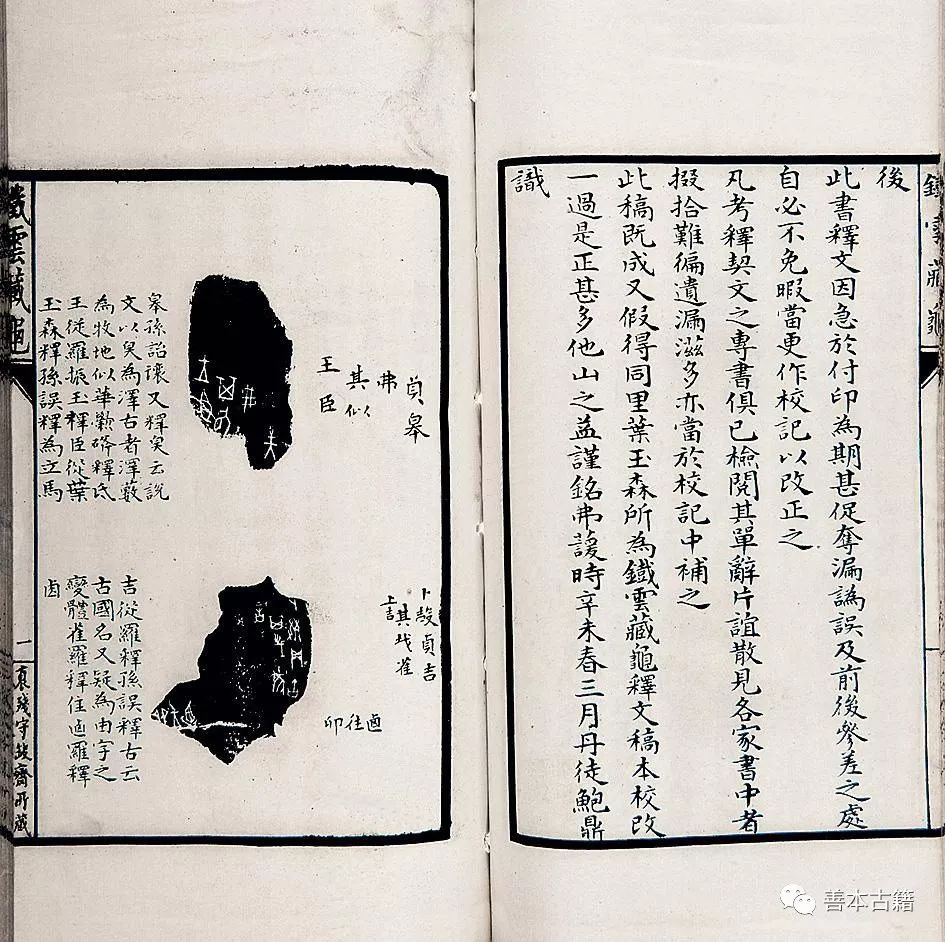 後
此書釋文因急於付印為期甚促奪漏譌誤及前後參差之處
自必不免暇當更作校記以改正之
凡考釋契文之專書俱已檢閱其單辭片誼散見各家書中者
掇拾難徧遺漏滋多亦當於校記中補之
此稿既成又假得同里葉玉森所為鐵雲藏龜釋文稿本校改
一過是正甚多他山之益謹銘弗諼時辛未春三月丹徒鮑鼎
識
貞皋
弗
其㠯
王
臣
皋孫詒讓又釋臭云說
文以臭為澤古者澤藪
為牧地㠯華學涑釋氐
王從羅振玉釋臣從葉
玉森釋孫誤釋為立馬
卜㱿貞吉
其𢦏雀
上吉
卣往
卯
吉從羅釋孫誤釋古云
古國名又疑為由字之
變體雀羅釋往卣羅釋
卤
鐵雲藏龜
一
裒殘守缺齋所藏
善本古籍